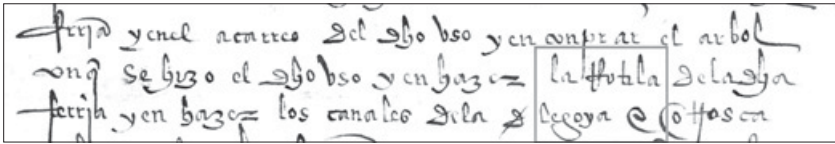 ferria y en el acarreo del dho vso y en conprar el arbol
con q se hizo el dho vso y en hazer la Rotila de la dha
ferria y en hazer los canales de la legoya e